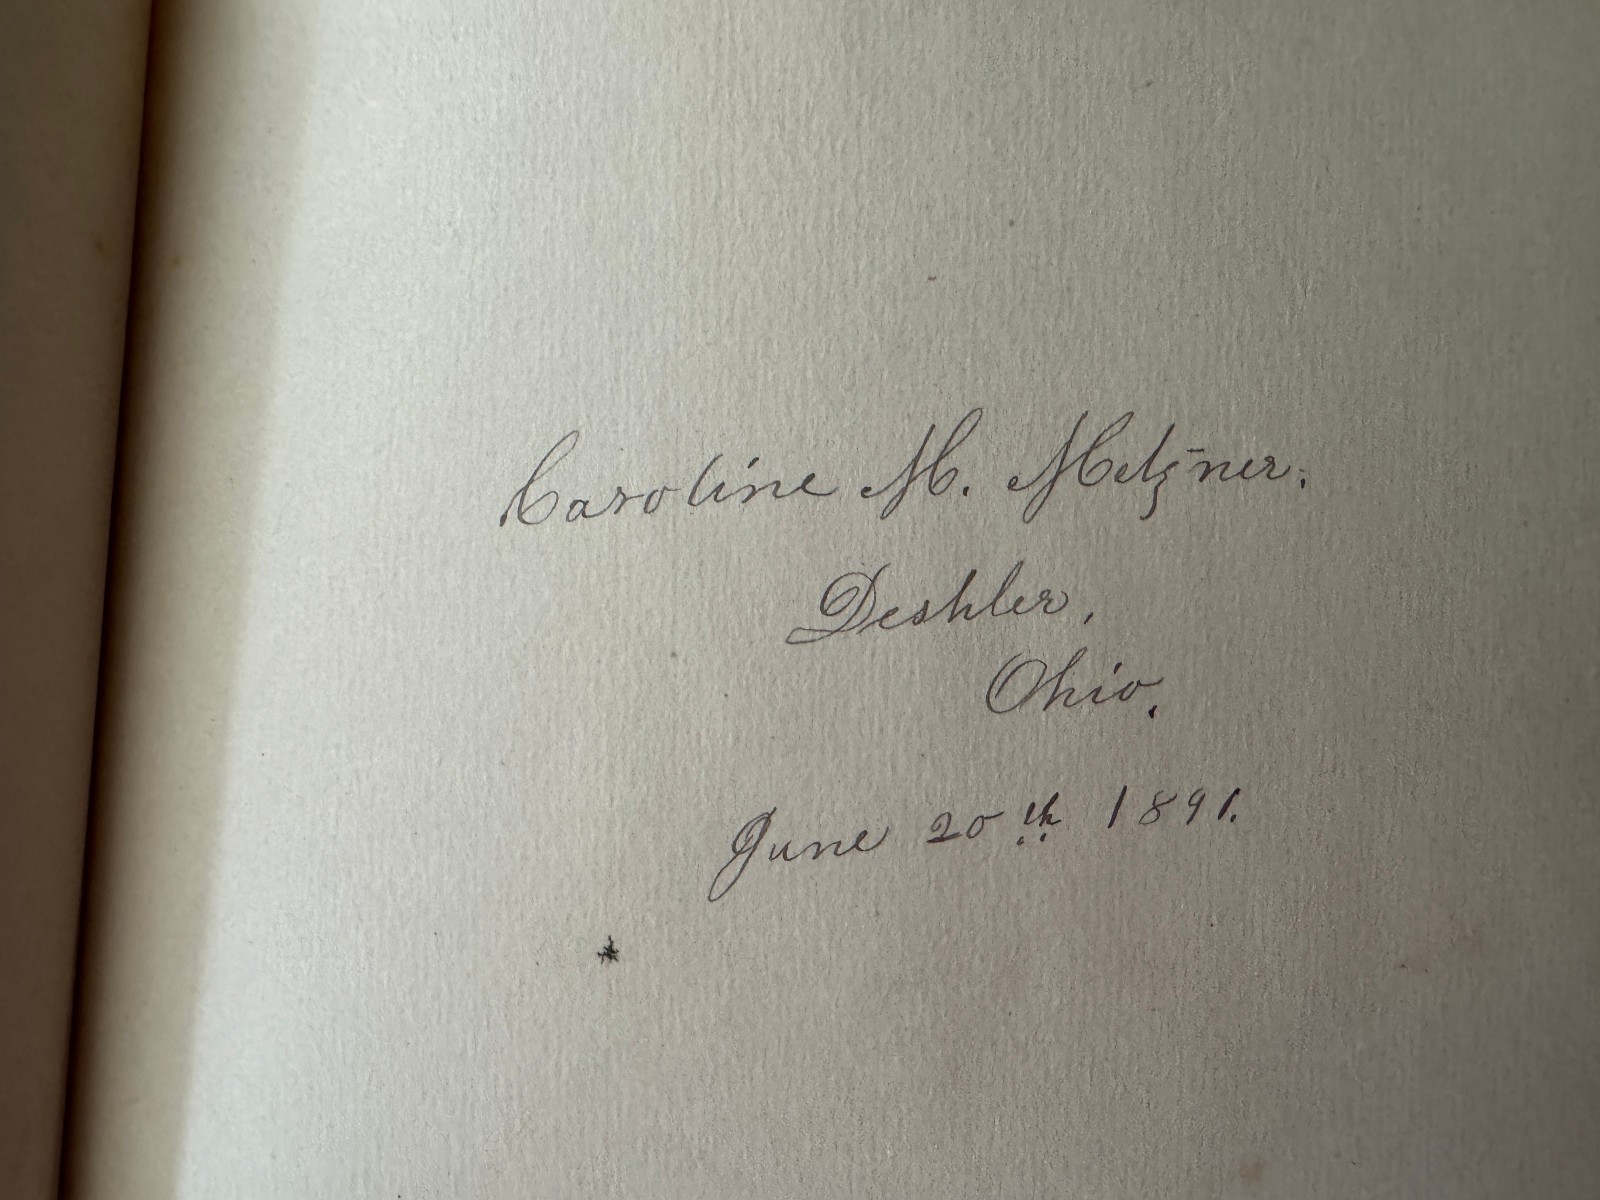 Caroline M. Metzner.
Deshler,
Ohio.
June 20th 1891.